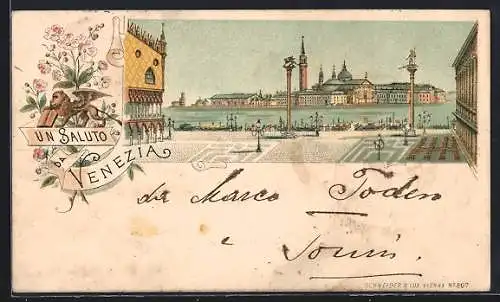 UN SALUTO
DA
VENEZIA
da Marco Toden
e
SCHNEIDER & LUX VIENNA Nº 807